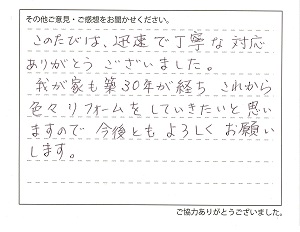 その他ご意見・ご感想をお聞かせください。
このたびは、迅速で丁寧な対応
ありがとうございました。
我が家も築30年が経ち これから
色々リフォームをしていきたいと思い
ますので 今後ともよろしくお願い
します。
ご協力ありがとうございました。